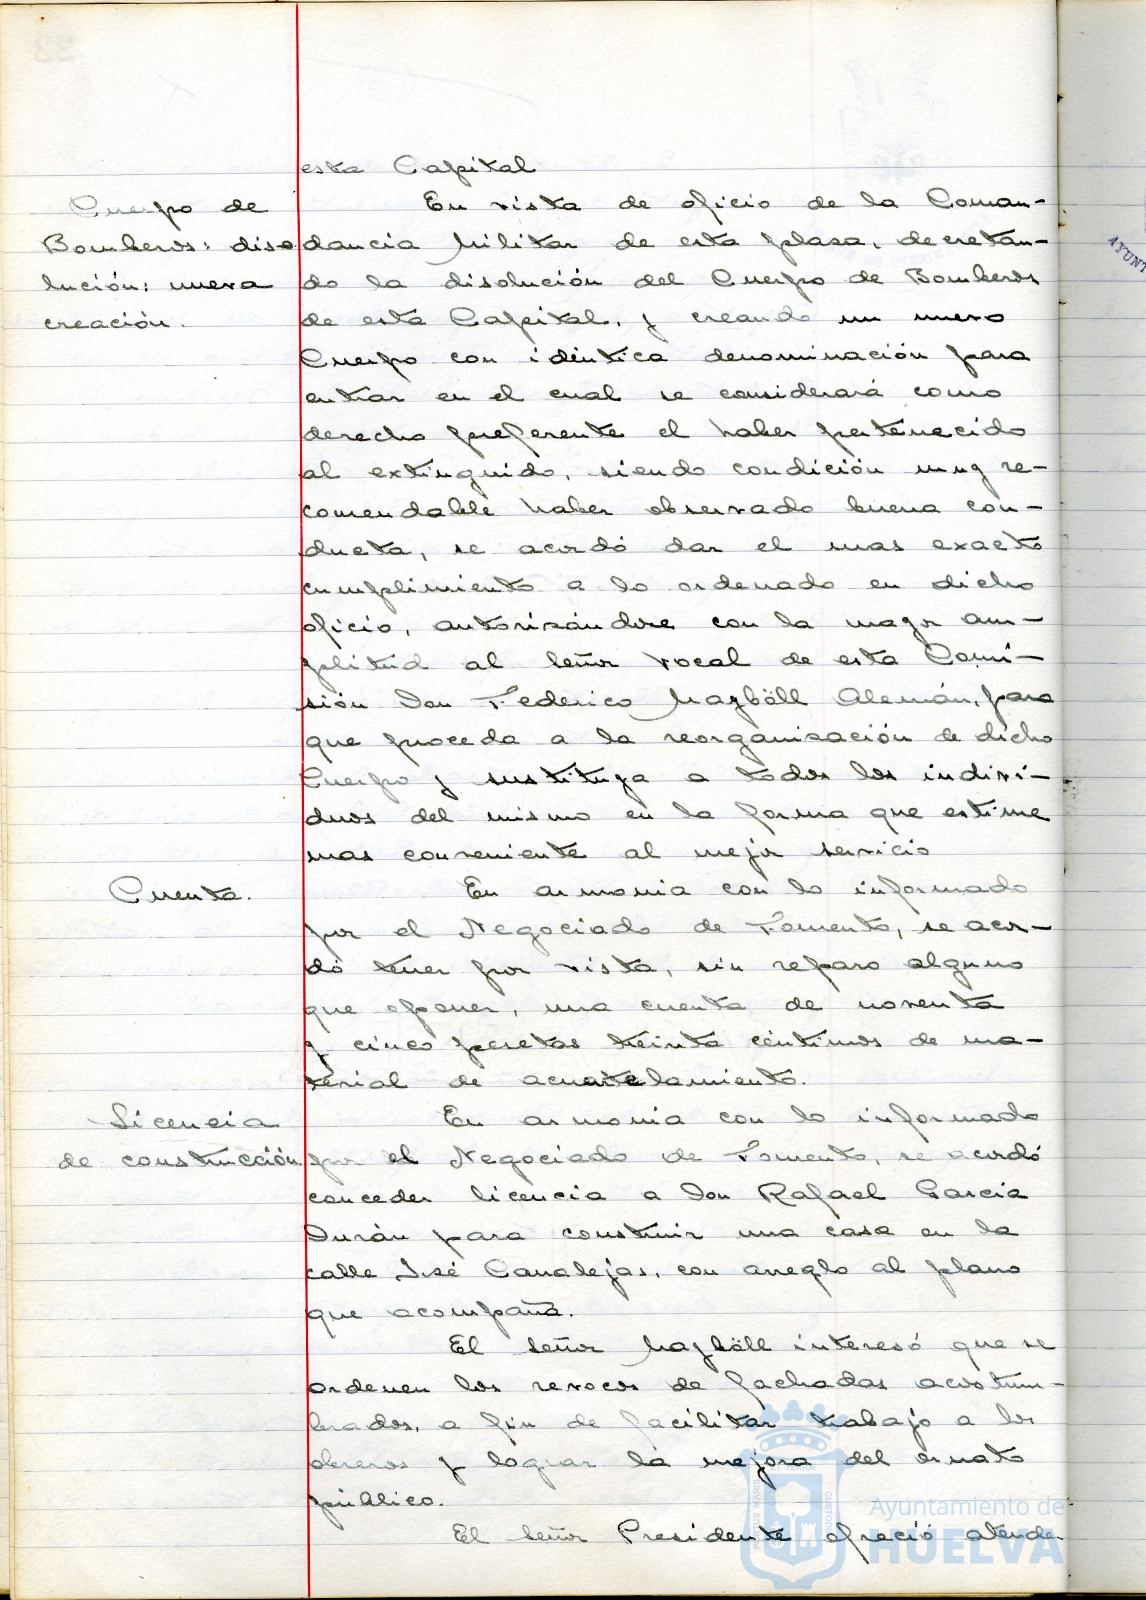 esta Capital
Cuerpo de
Bomberos: diso
lución: nueva
creación.
En vista de oficio de la Coman-
dancia Militar de esta plaza, decretan-
do la disolución del Cuerpo de Bomberos
de esta Capital, y creando un nuevo
Cuerpo con idéntica denominación para
entrar en el cual se considerará como
derecho preferente el haber pertenecido
al extinguido, siendo condición muy re-
comendable haber observado buena con-
ducta, se acordó dar el mas exacto
cumplimiento a lo ordenado en dicho
oficio, autorizándose con la mayor am-
plitud al señor vocal de esta Comi-
sión Don Federico Mayböll Alemán, para
que proceda a la reorganización de dicho
Cuerpo y sustituya a todos los indivi-
duos del mismo en la forma que estime
mas conveniente al mejor servicio
Cuenta.
En armonia con lo informado
por el Negociado de Fomento, se acor-
dó tener por vista, sin reparo alguno
que oponer, una cuenta de noventa
y cinco pesetas treinta céntimos de ma-
terial de acuartelamiento.
Licencia
de construcción
En armonia con lo informado
por el Negociado de Fomento, se acordó
conceder licencia a Don Rafael Garcia
Durán para construir una casa en la
calle José Canalejas, con arreglo al plano
que acompaña.
El señor Mayböll interesó que se
ordenen los revocos de fachadas acostum-
brados, a fin de facilitar trabajo a los
obreros y lograr la mejora del ornato
público.
El señor Presidente ofreció atende-
Ayuntamiento de
HUELVA
AYUNT